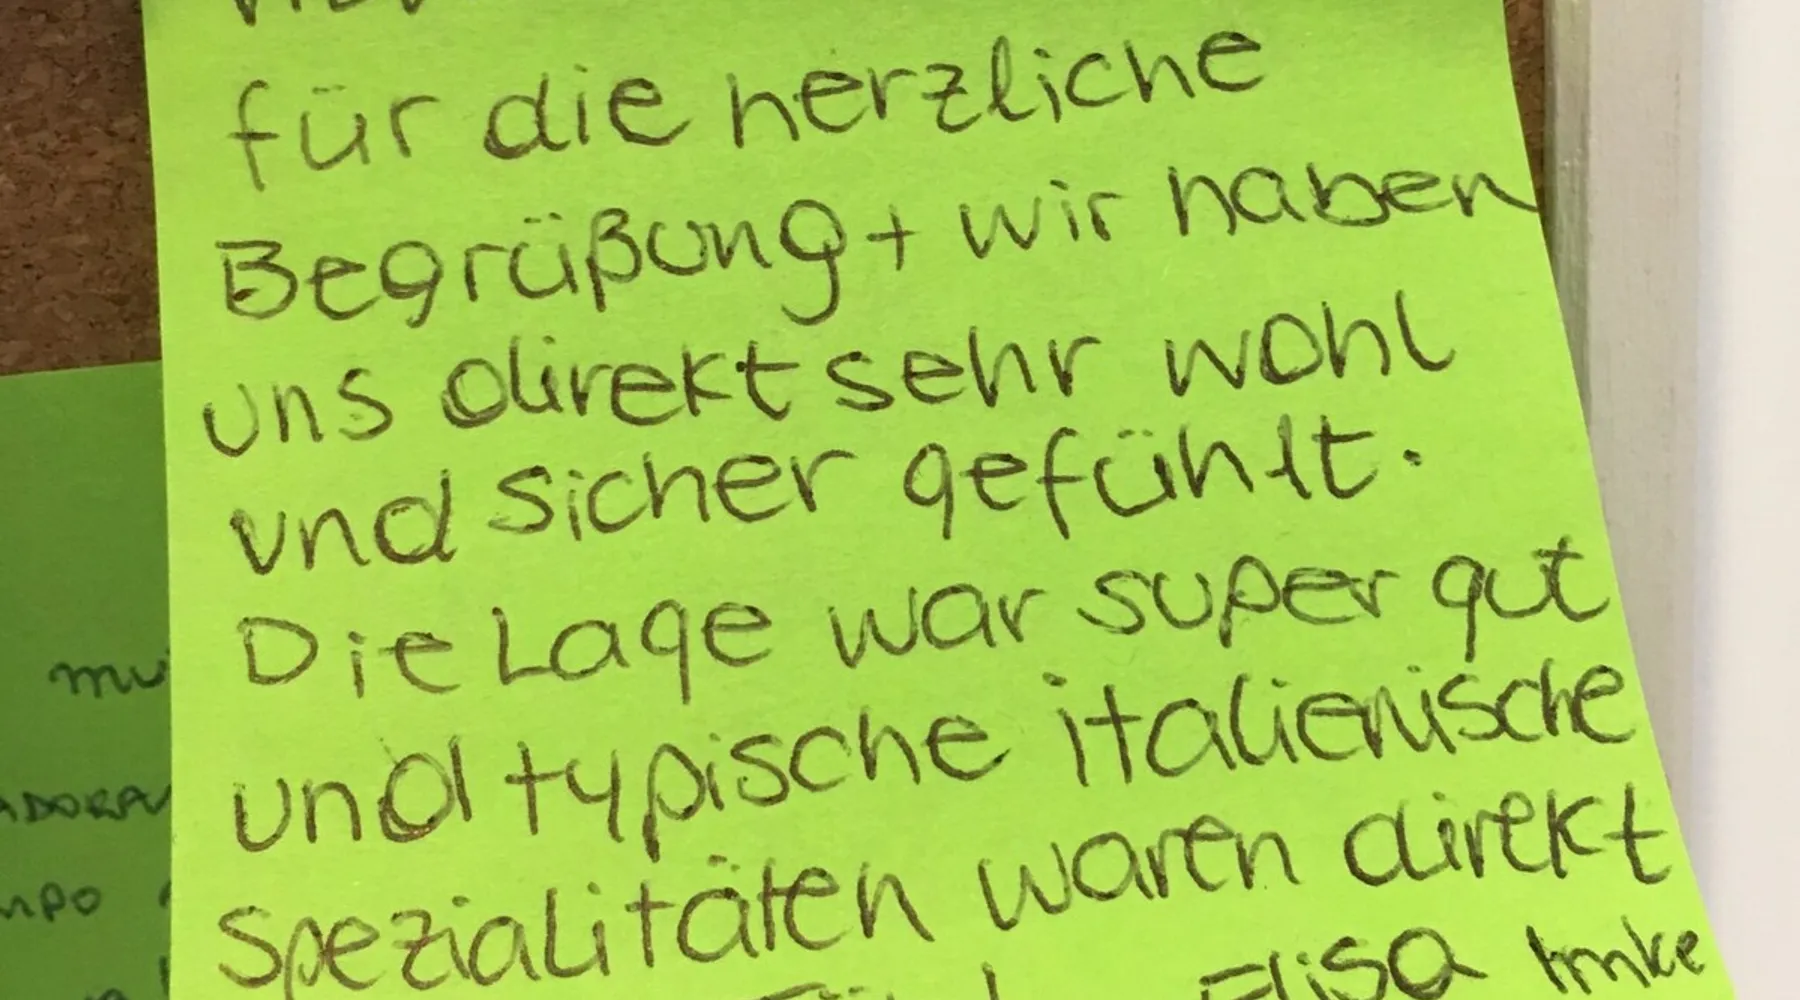 für die herzliche
Begrüßung + wir haben
uns direkt sehr wohl
und sicher gefühlt.
Die Lage war super gut
und typische italienische
Spezialitäten waren direkt
Elisa Imke